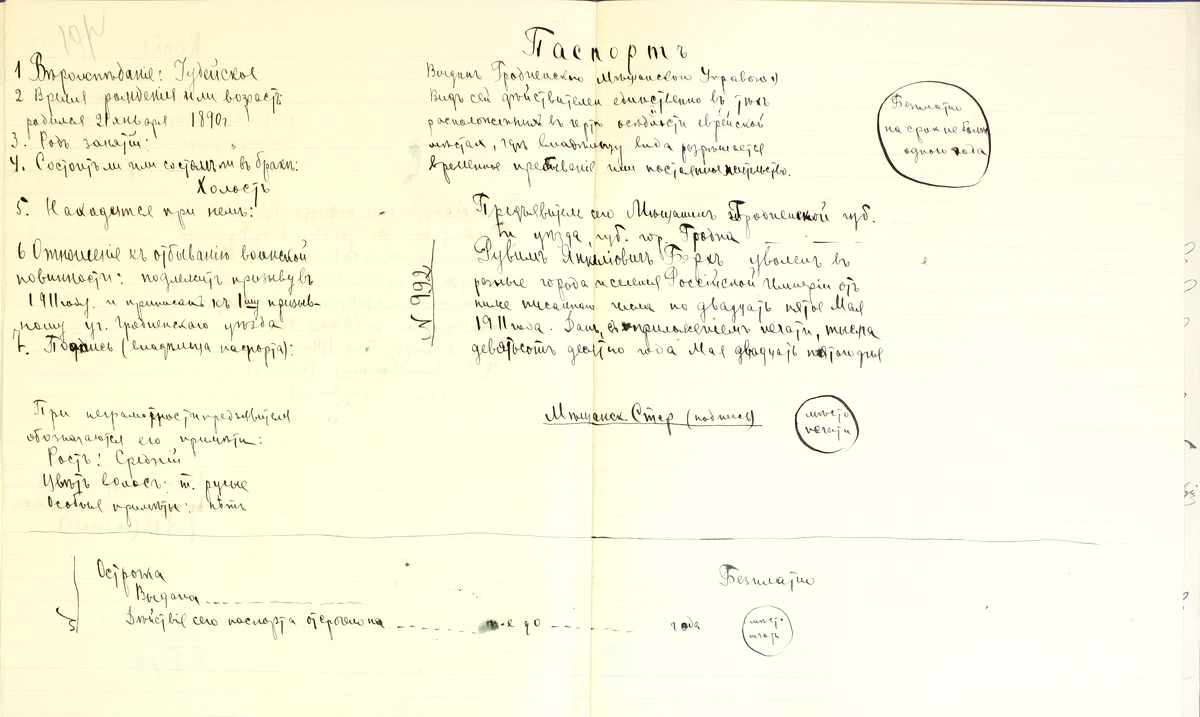 Паспортъ
1 Вѣроисповѣданіе: Іудейское
2 Время рожденія или возрастъ
родился 21 января 1890 г.
3. Родъ занятій:
4. Состоитъ ли или состоялъ ли въ бракѣ:
Холостъ
5. Находятся при немъ:
6 Отношеніе къ отбыванію воинской
повинности: подлежитъ призыву въ
1911 году. и приписанъ къ 1му призыв-
ному уч. Гродненскаго уѣзда
7. Подпись (владѣльца паспорта):
При неграмотности предъявителя
обозначаются его примѣты:
Ростъ: Средній
Цвѣтъ волосъ: т. русые
Особыя примѣты: нѣтъ
Выданъ Гродненской Мѣщанскою Управою
Видъ сей дѣйствителен единственно въ тѣхъ
расположенных въ чертѣ осѣдлости еврейской
мѣстах, гдѣ владѣльцу вида разрѣшается
временное пребываніе или постоянное жительство.
Безплатно
на срок не болѣе
одного года
Предъявитель сего Мѣщанинъ Гродненской губ.
уѣзда, губ. гор. Гродна
№ 992
Рувимъ Янкеліовичъ Беркъ уволенъ въ
разные города и селенія Россійской Имперіи отъ
ниже писаннаго числа по двадцать пятое Мая
1911 года. Данъ, съ приложеніемъ печати, тысяча
девятьсотъ десятаго года Мая двадцать пятого дня
Мѣщанск. Стар (подпись)
мѣсто
печати
Острожка
Выдана
Дѣйствіе сего паспорта отсрочено на м-е до года
Безплатно
мѣсто
печати